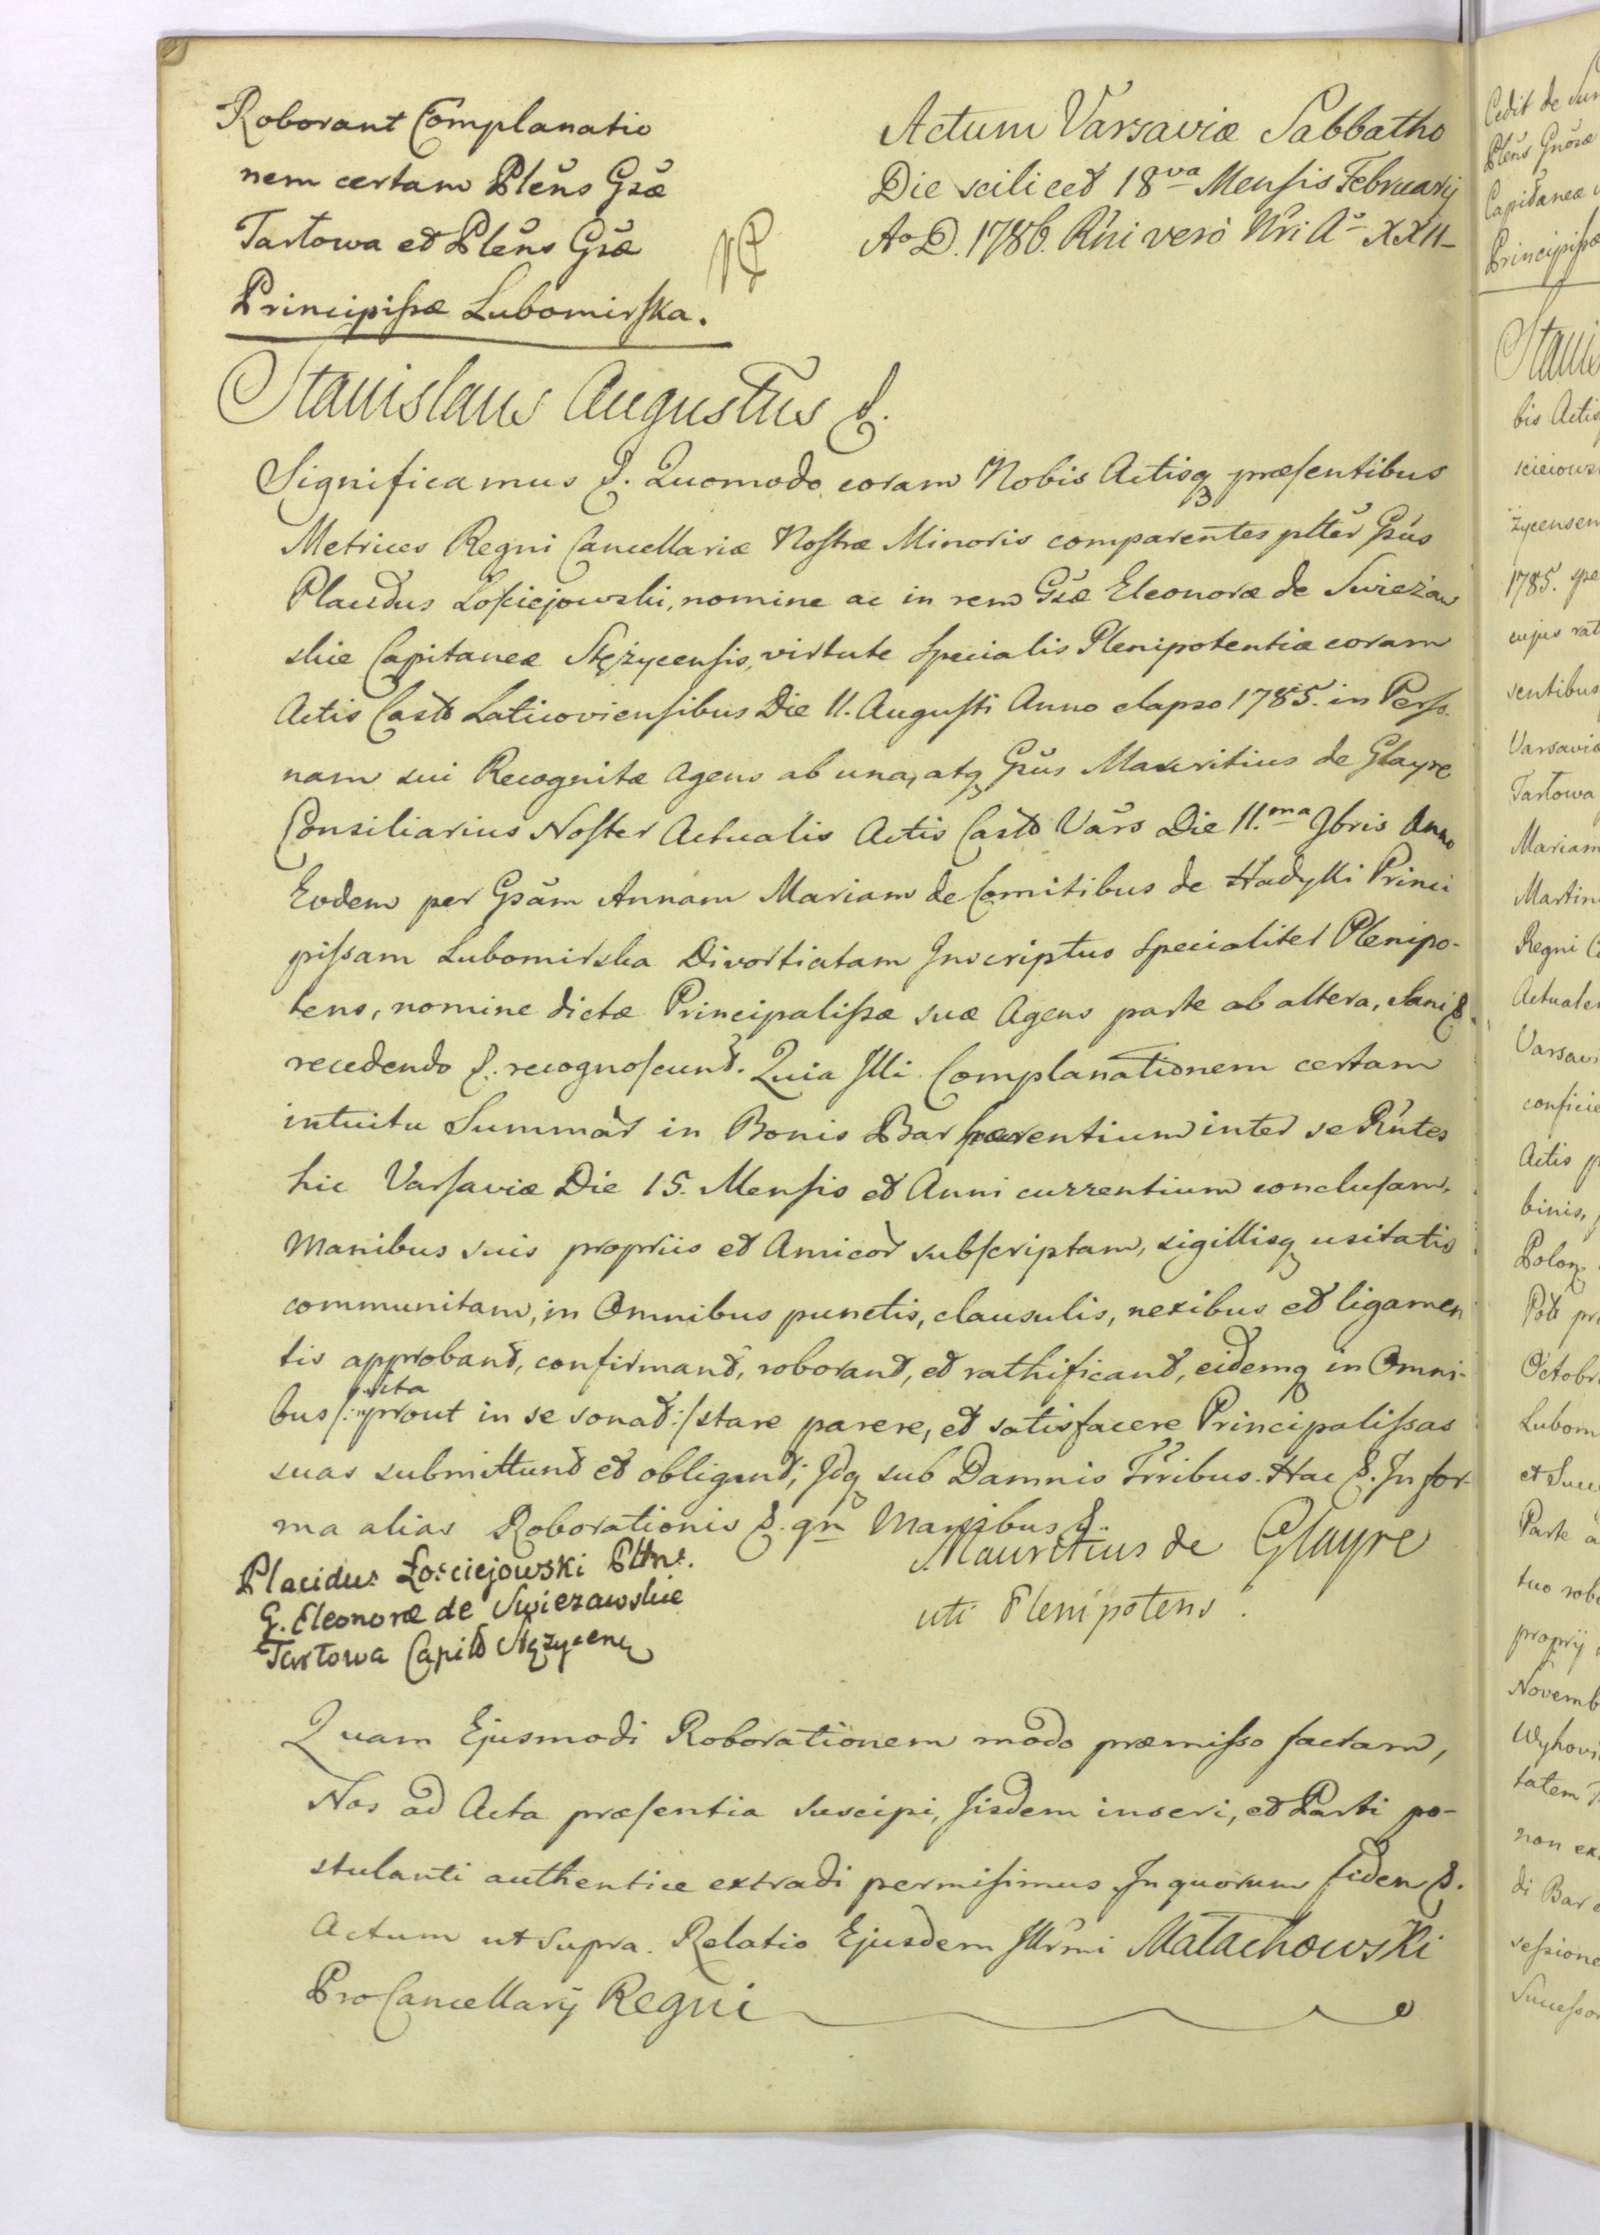 Roborant Complanatio
nem certam Pleñs Gsæ
Tarłowa et Pleñs Gsæ
Principissæ Lubomirska.
Actum Varsaviæ Sabbatho
Die scilicet 18va Mensis Februarij
Ao D. 1786. Rñi vero Nri Ao XXII
Stanislaus Augustus &.
Significamus &. Quomodo coram Nobis Actisq præsentibus
Metrices Regni Cancellariæ Nostræ Minoris comparentes plter Gsus
Placidus Łosciejowski, nomine ac in rem Gsæ Eleonoræ de Swieżaw
skie Capitaneæ Stężycensis, virtute specialis Plenipotentiæ coram
Actis Castr Laticoviensibus Die 11. Augusti Anno elapso 1785. in Perso
nam sui Recognitæ Agens ab una, atq Gsus Mauritius de Glayre
Consiliarius Noster Actualis Actis Castr Vars Die 11.ma Jbris Anno
Eodem per Gsam Annam Mariam de Comitibus de Hadyki Princi
pissam Lubomirska Divortiatam Inscriptus specialiter Plenipo-
tens, nomine dictæ Principalissæ suæ Agens parte ab altera, Sani &.
recedendo &. recognoscunt. Quia Illi Complanationem certam
intuitu Summar in Bonis Bar hærentium inter se Rñtes
hic Varsaviæ Die 15. Mensis et Anni currentium conclusam,
Manibus suis propriis et Amicor subscriptam, sigillisq usitatis
communitam, in Omnibus punctis, clausulis, nexibus et ligamen
tis approbant, confirmant, roborant, et rathificant, eidemq in Omni-
bus /: prout in se sonat :/ stare parere, et satisfacere Principalissas
suas submittunt et obligant; Idq sub Damnis Trribus. Hac &. In for-
ma alias Roborationis &. qrn Manibus &.
Placidus Łosciejowski Pltns.
G. Eleonoræ de Swiezawskie
Tarłowa Capit Stężycen
Mauritius de Glayre
uti Plenipotens.
Quam Ejusmodi Roborationem modo præmisso factam,
Nos ad Acta præsentia suscipi, Iisdem inseri, et Parti po-
stulanti authentice extradi permisimus In quorum fidem &.
Actum ut supra. Relatio Ejusdem Illrmi Małachowski
ProCancellarij Regni